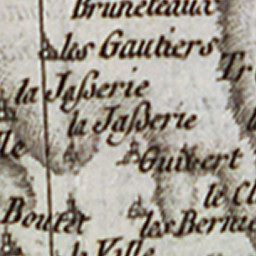 Bruneteaux
les Gautiers
la Jaßerie
la Jaßerie
Guibert
Boutet
les Bernar
la Ville